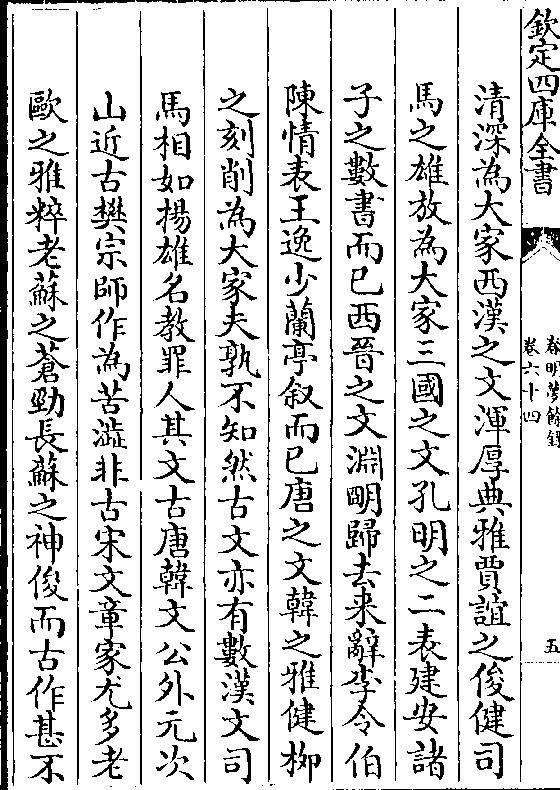 欽定四庫全書
春明夢餘錄
卷六十四
五
清深為大家西漢之文渾厚典雅賈誼之俊健司
馬之雄放為大家三國之文孔明之二表建安諸
子之數書而已西晉之文淵明歸去来辭李令伯
陳情表王逸少蘭亭叙而已唐之文韓之雅健柳
之刻削為大家夫孰不知然古文亦有數漢文司
馬相如揚雄名教罪人其文古唐韓文公外元次
山近古樊宗師作為苦澁非古宋文章家尤多老
歐之雅粹老蘇之蒼勁長蘇之神俊而古作甚不